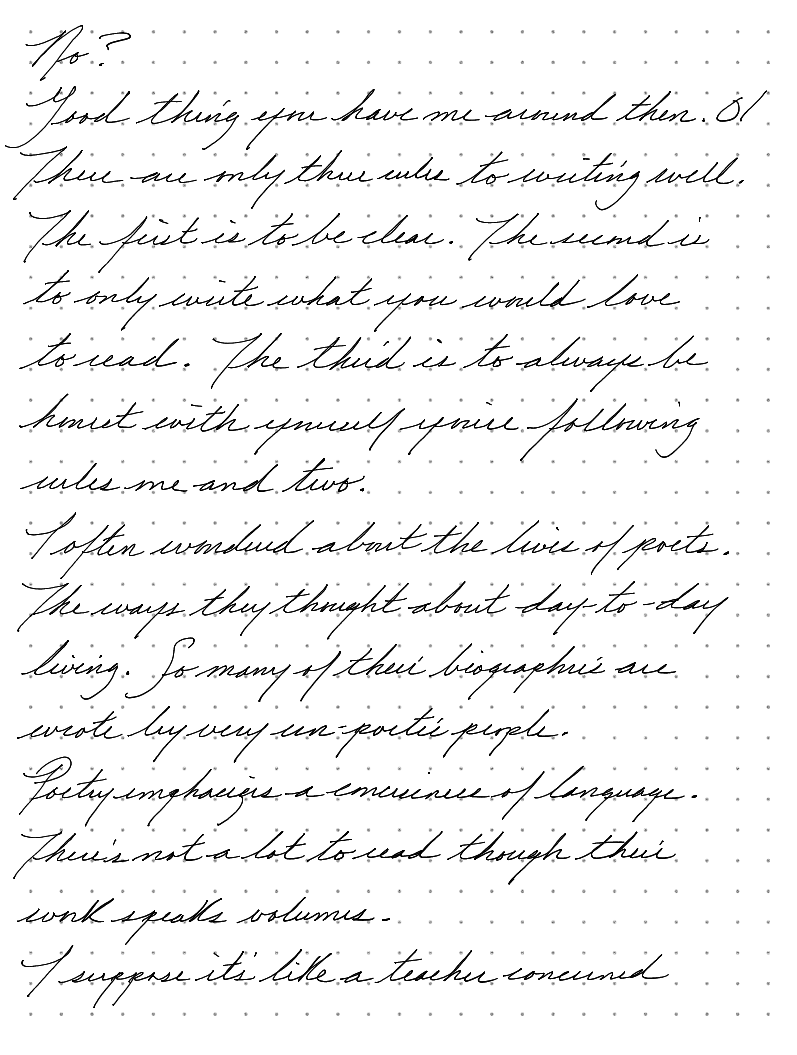 No?
Good thing you have me around then. Ol
There are only three rules to writing well.
The first is to be clear. The second is
to only write what you would love
to read. The third is to always be
honest with yourself you're following
rules one and two.
I often wondered about the lives of poets.
The ways they thought about day-to-day
living. So many of their biographies are
wrote by very un-poetic people.
Poetry emphasizes a conciseness of language.
There's not a lot to read though their
work speaks volumes.
I suppose it's like a teacher concerned